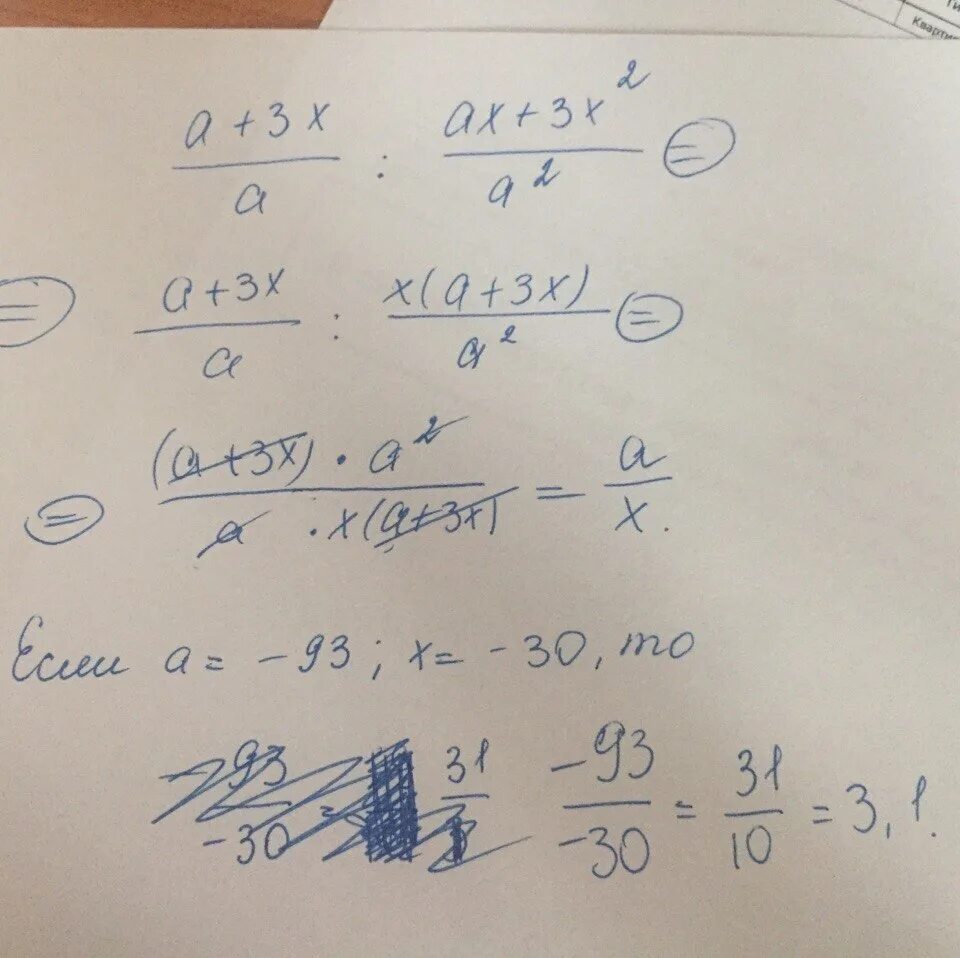 Кварти
(a+3x)/a : (ax+3x²)/a² =
= (a+3x)/a : x(a+3x)/a² =
= (a+3x)·a²/a·x(a+3x) = a/x.
Если a = -93; x = -30, то
-93/-30 = 31/ -93/-30 = 31/10 = 3,1.